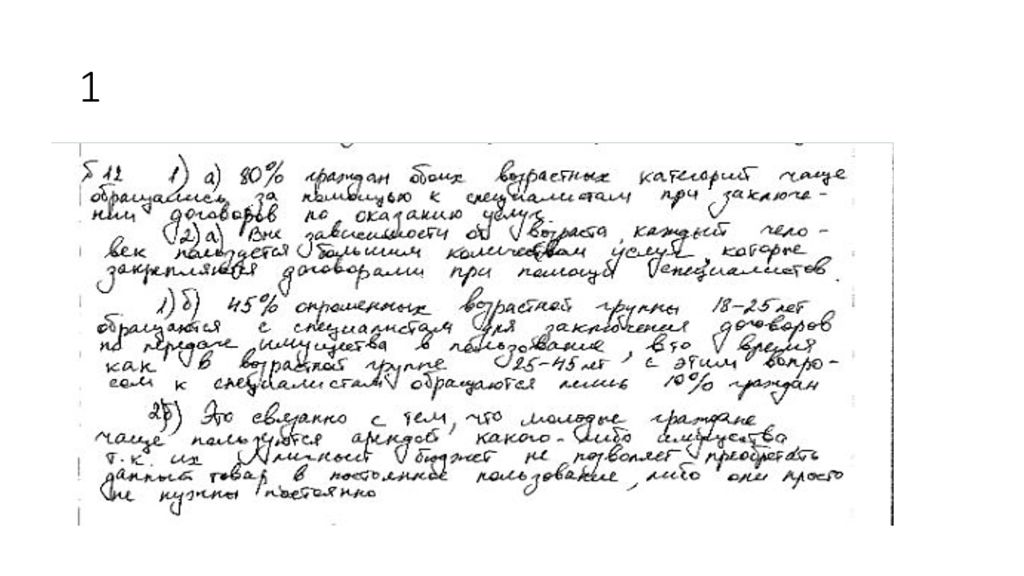 1
№12 1) а) 80% граждан обоих возрастных категорий чаще
обращались за помощью к специалистам при заключе-
нии договоров по оказанию услуг.
2) а) Вне зависимости от возраста, каждый чело-
век пользуется большим количеством услуг, которые
закрепляются договорами при помощи специалистов.
1) б) 45% опрошенных возрастной группы 18-25 лет
обращаются с специалистам для заключения договоров
по передаче имущества в пользование, в то время
как в возрастной группе 25-45 лет, с этим вопро-
сом к специалистам обращаются лишь 10% граждан
2б) Это связанно с тем, что молодые граждане
чаще пользуются арендой какого-либо имущества
т.к. их личный бюджет не позволяет преобретать
данный товар в постоянное пользование, либо они просто
не нужны постоянно